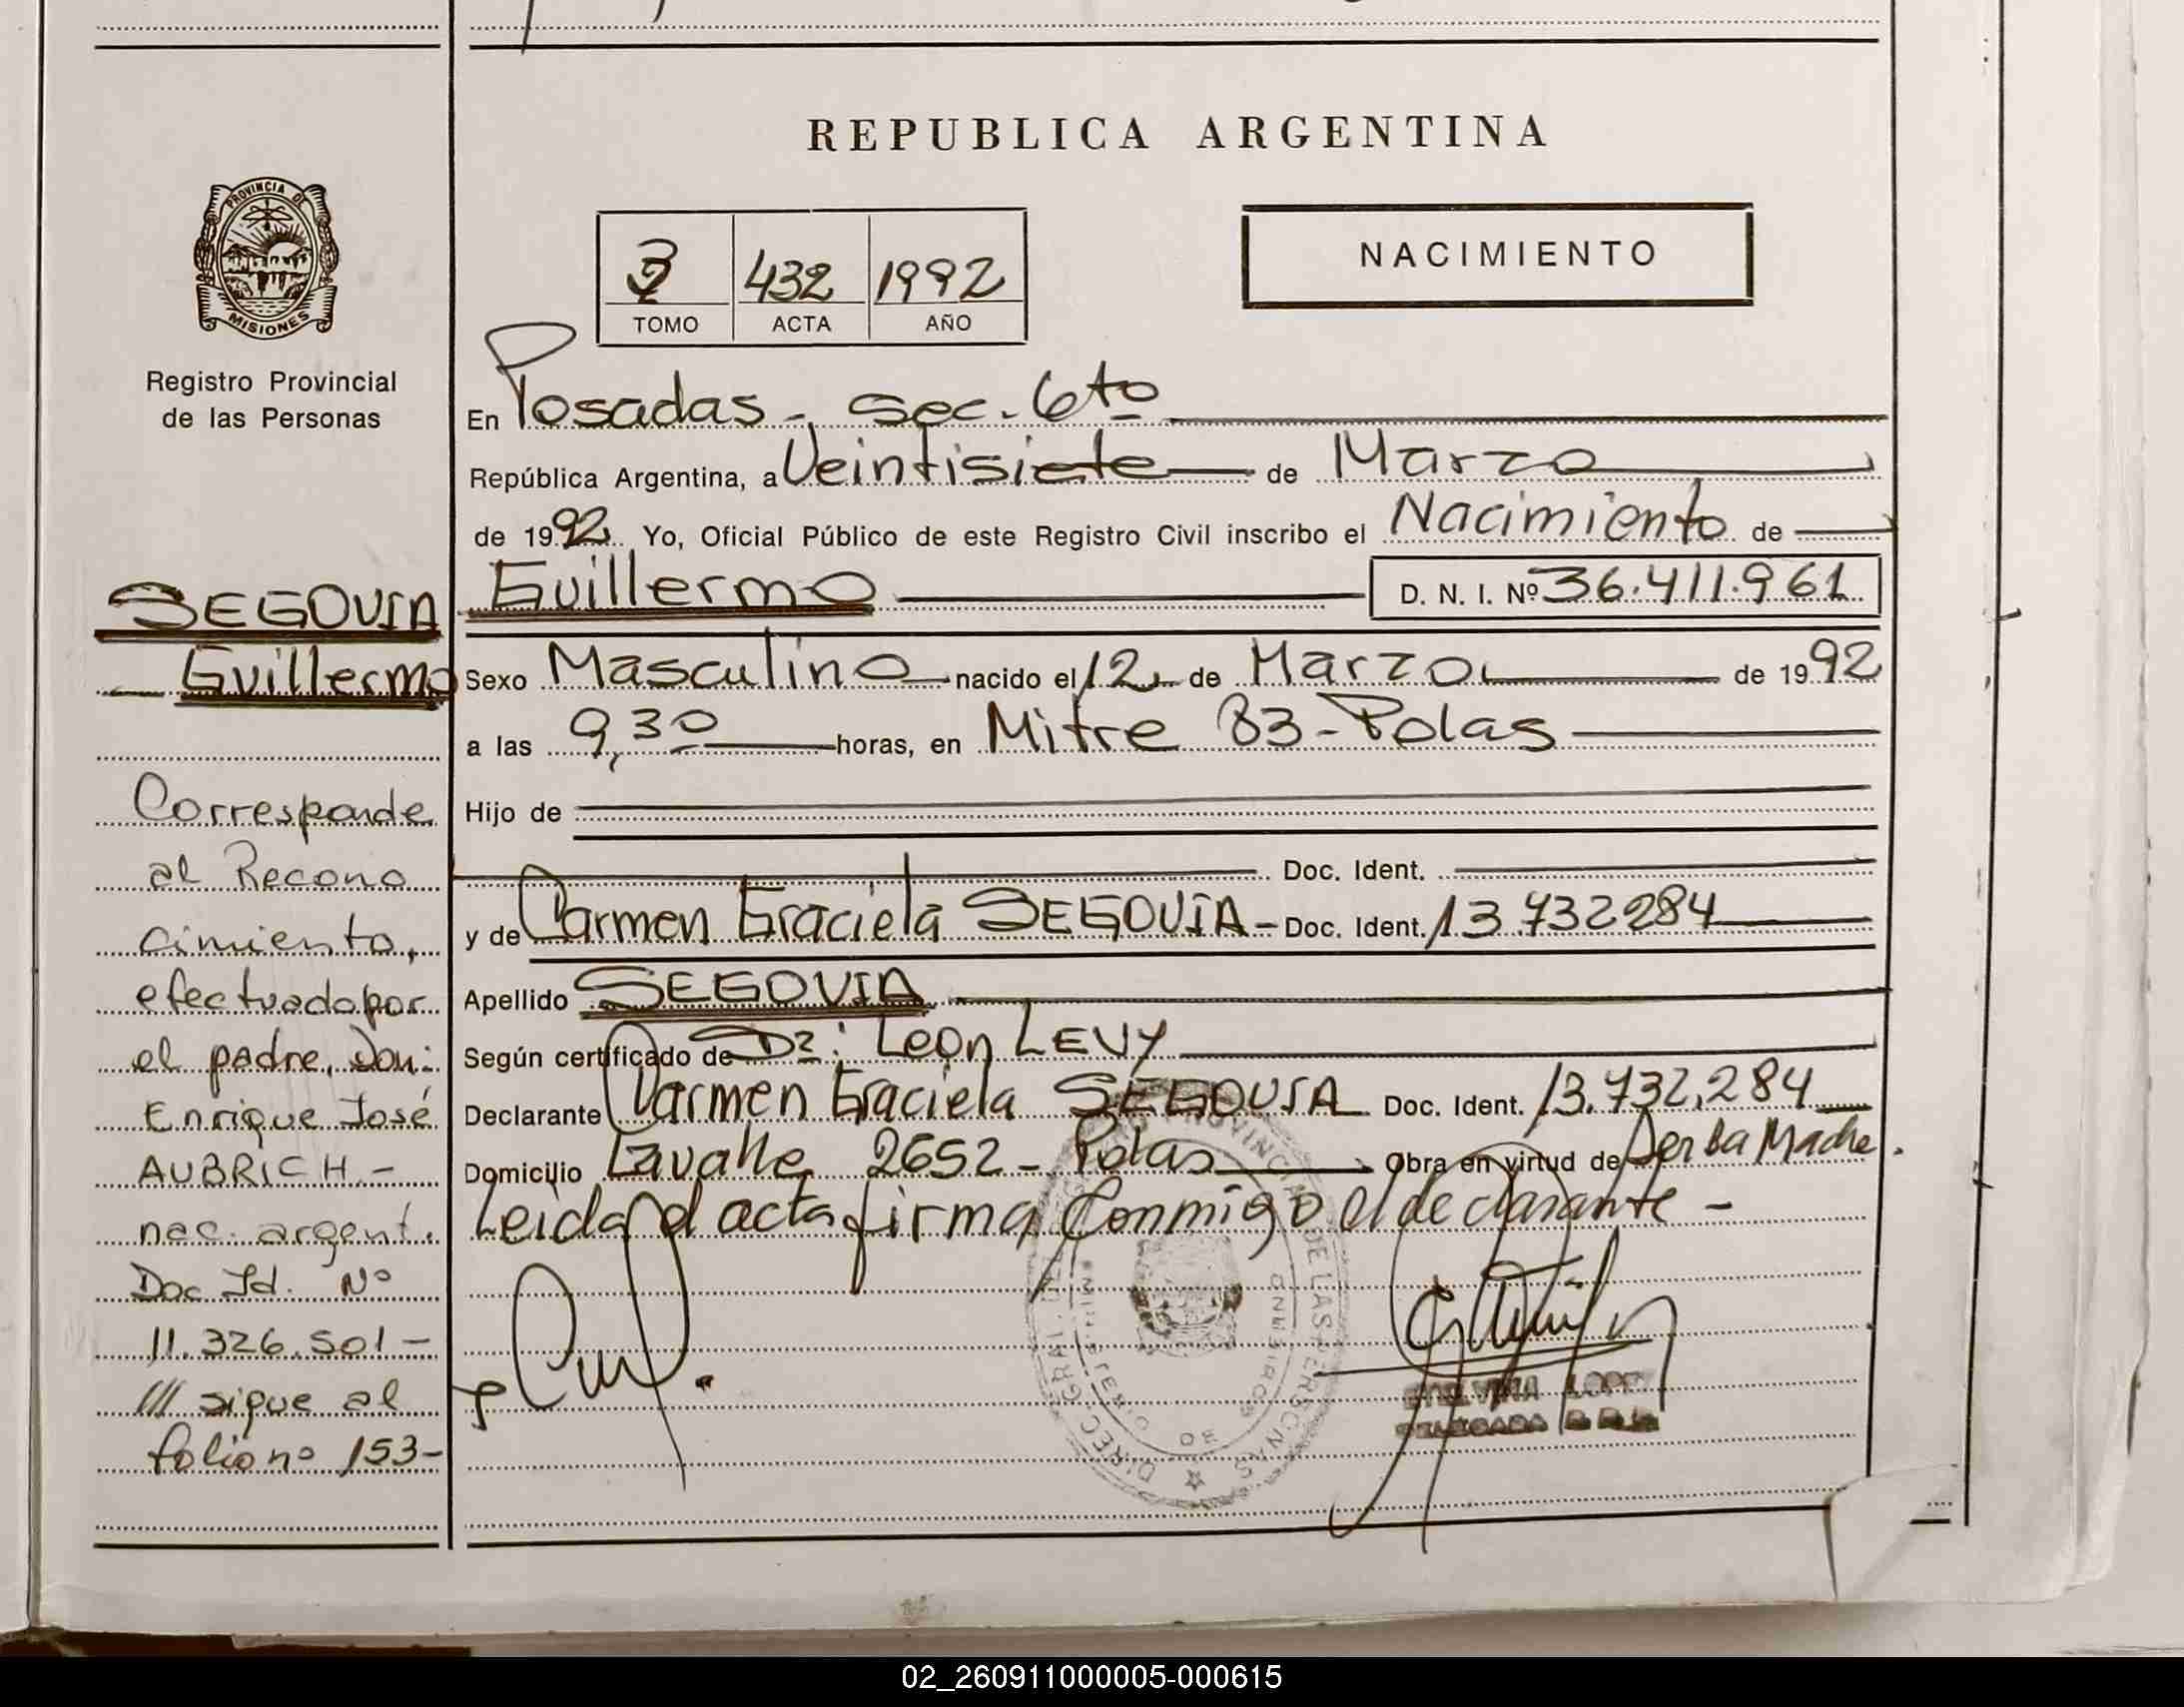 REPUBLICA ARGENTINA
PROVINCIA DE
MISIONES
Registro Provincial
de las Personas
NACIMIENTO
3 432 1992
TOMO ACTA AÑO
En Posadas - Sec. 6to
República Argentina, a Veintisiete de Marzo
de 1992 Yo, Oficial Público de este Registro Civil inscribo el Nacimiento de
Guillermo D. N. I. Nº 36.411.961
Sexo Masculino nacido el 12 de Marzo de 1992
a las 9,30 horas, en Mitre 83 - Pdas
Hijo de
Doc. Ident.
y de Carmen Graciela SEGOVIA - Doc. Ident. 13.732284
Apellido SEGOVIA
Según certificado de Dr: León LEVY
Declarante Carmen Graciela SEGOVIA Doc. Ident. 13.732,284
Domicilio Lavalle 2652 - Pdas Obra en virtud de Ser La Madre.
Leida el acta firma Conmigo el declarante -
SEGOVIA
Guillermo
Corresponde
al Recono
cimiento,
efectuado por
el padre, Don:
Enrique José
AUBRICH. -
nac. argent.
Doc Id. Nº
11.326.501 -
/// sigue al
folio nº 153 -
ETELVINA LOPEZ
DELEGADA
02_260911000005-000615